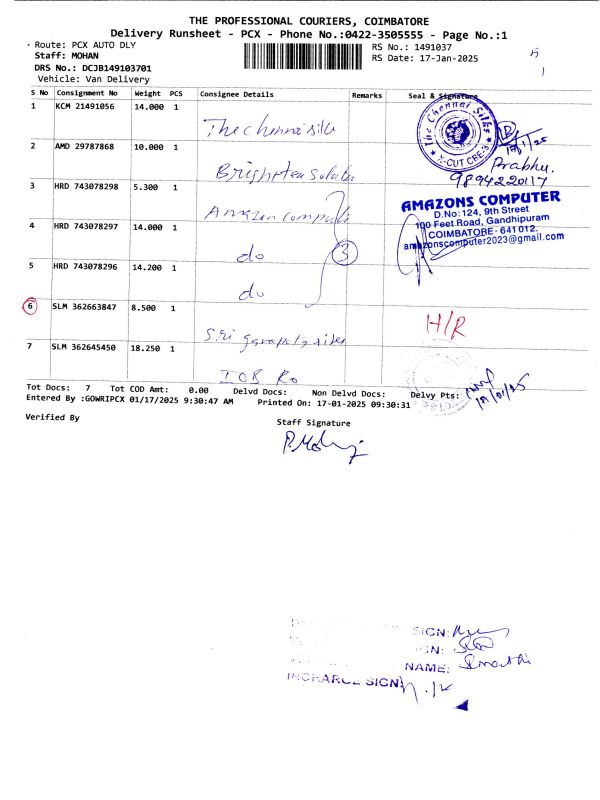 THE PROFESSIONAL COURIERS, COIMBATORE
Delivery Runsheet - PCX - Phone No.:0422-3505555 - Page No.:1
Route: PCX AUTO DLY
Staff: MOHAN
DRS No.: DCJB149103701
Vehicle: Van Delivery
RS No.: 1491037
RS Date: 17-Jan-2025
5
1
S No Consignment No Weight PCS Consignee Details Remarks Seal & Signature
1 KCM 21491056 14.000 1 The chennai silk
The Chennai Silks
X-CUT CBE-3
Prabhu.
9894220117
2 AMD 29787868 10.000 1
3 HRD 743078298 5.300 1 Amazon
AMAZONS COMPUTER
D.No: 124, 9th Street
100 Feet Road, Gandhipuram
COIMBATORE - 641 012.
amazonscomputer2023@gmail.com
4 HRD 743078297 14.000 1 do
3
5 HRD 743078296 14.200 1 do
6 SLM 362663847 8.500 1 Sri
H/R
7 SLM 362645450 18.250 1 IOB Ro
Tot Docs: 7 Tot COD Amt: 0.00 Delvd Docs: Non Delvd Docs: Delvy Pts:
Entered By :GOWRIPCX 01/17/2025 9:30:47 AM Printed On: 17-01-2025 09:30:31
Verified By
Staff Signature
SIGN:
SIGN:
NAME:
INCHARGE SIGN